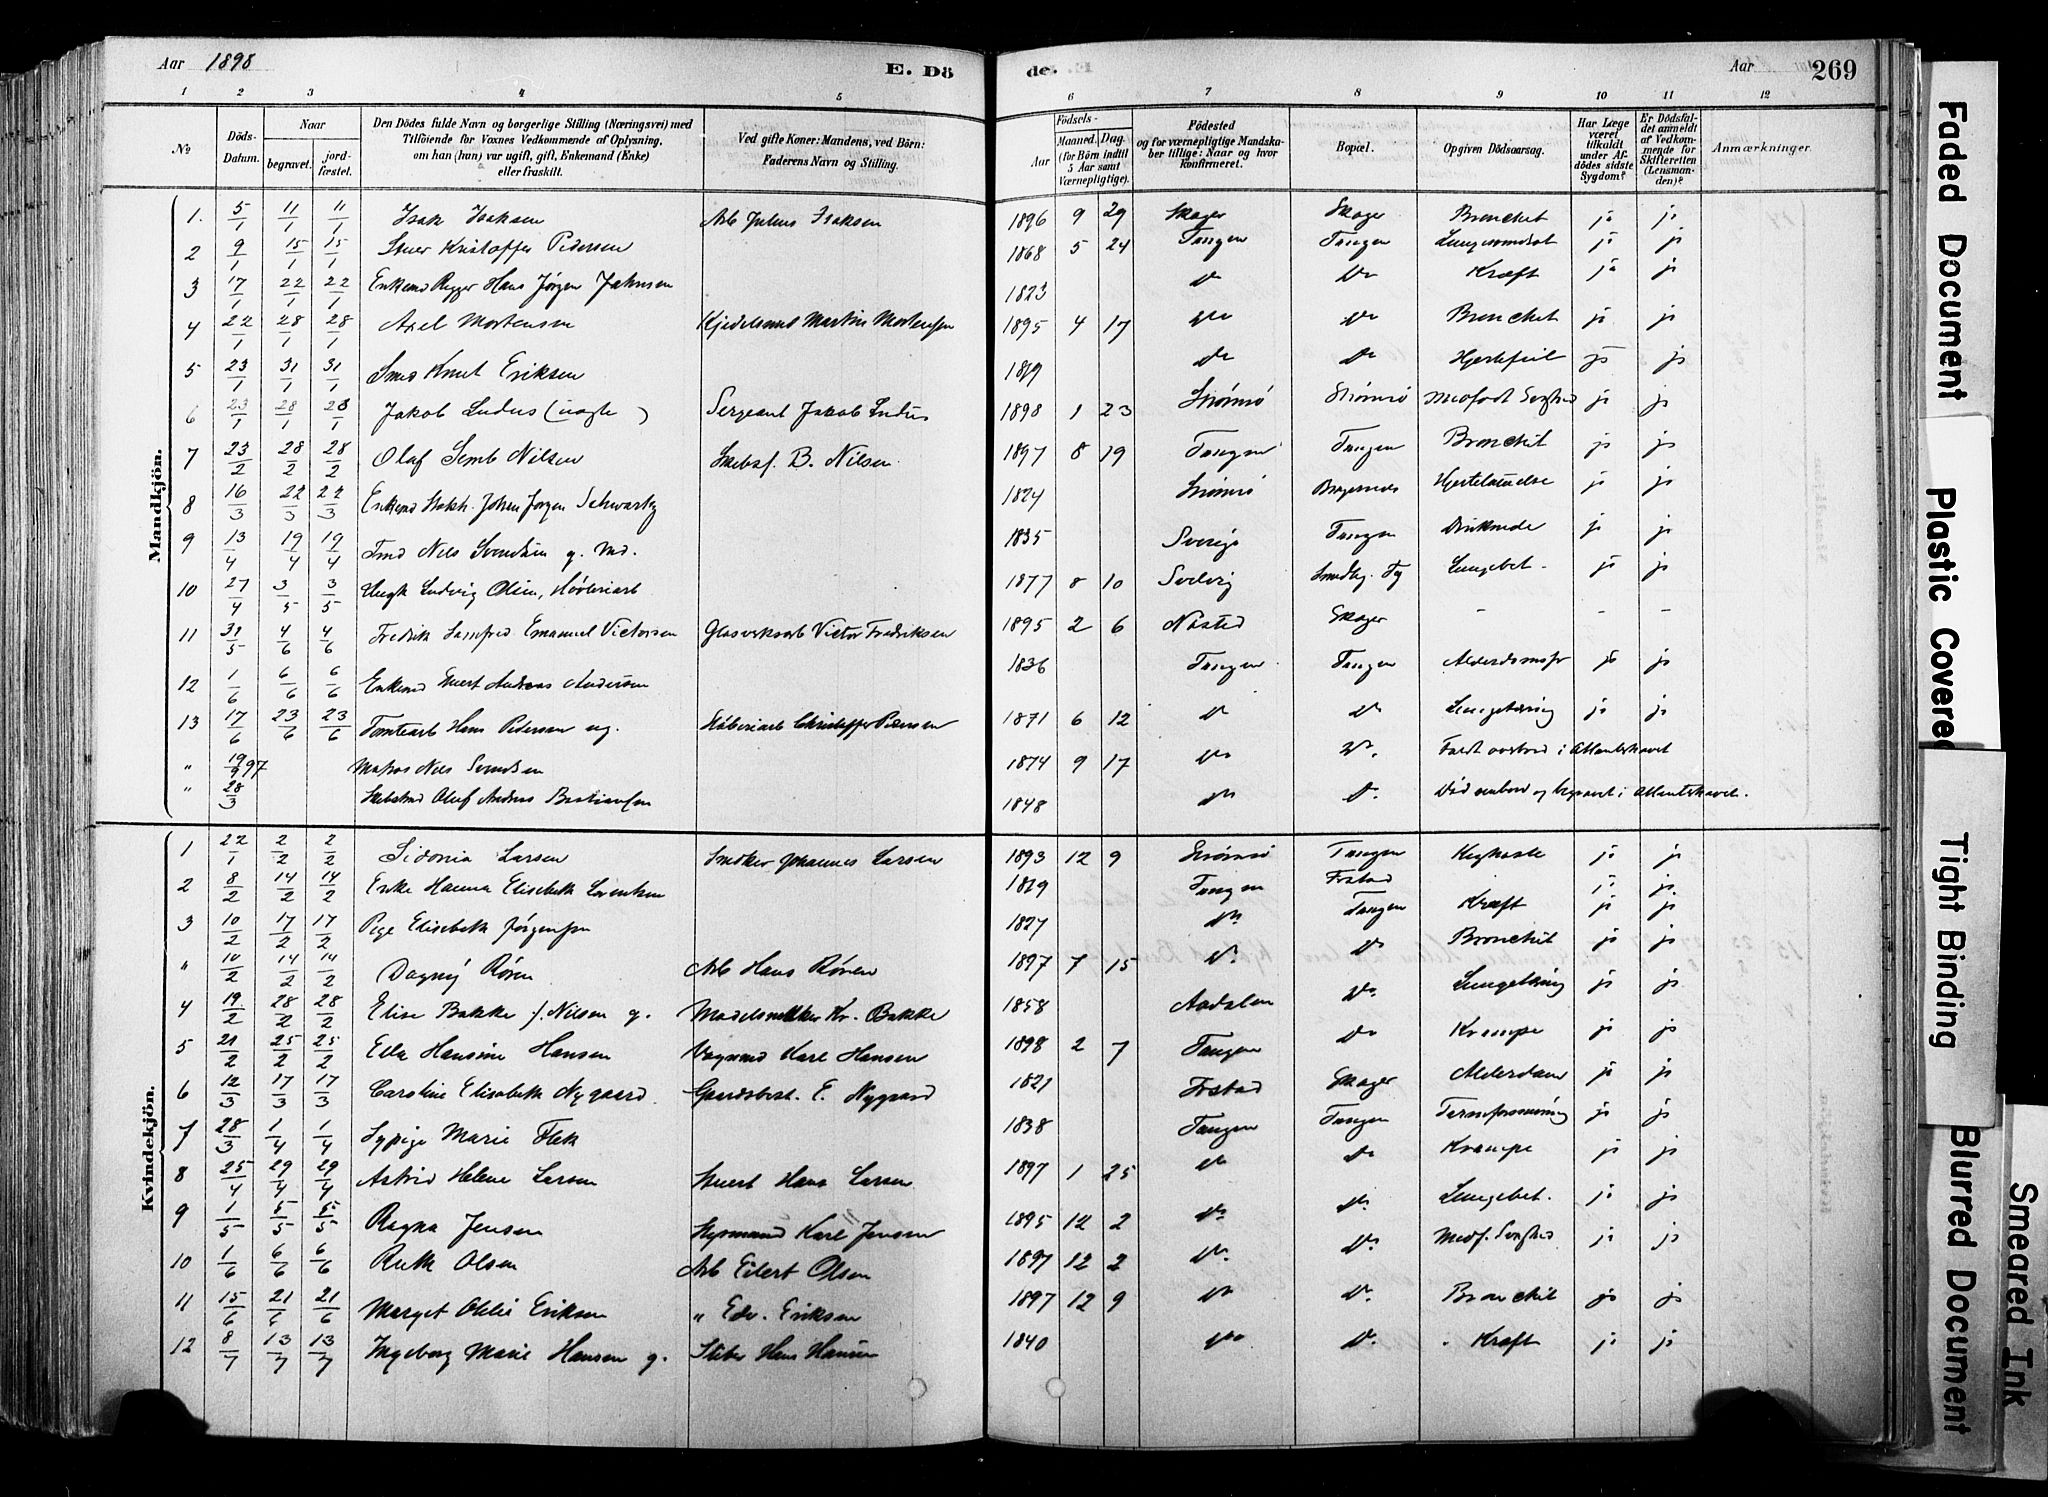 Aar 1898
E. Dö
de.
Aar
269
1 2 3 4 5 6 7 8 9 10 11 12
No
Döds-Datum.
Naar
begravet.
jord-fæstet.
Den Dödes fulde Navn og borgerlige Stilling (Næringsvei) med Tilföiende for Voxnes Vedkommende af Oplysning, om han (hun) var ugift, gift, Enkemand (Enke) eller fraskilt.
Ved gifte Koner: Mandens, ved Börn: Faderens Navn og Stilling.
Födsels-
Aar
Maaned.
Dag.
(for Börn indtil 5 Aar samt Værnepligtige).
Födested og for værnepligtige Mandskaber tillige: Naar og hvor konfirmeret.
Bopæl.
Opgiven Dödsaarsag.
Har Læge været tilkaldt under Afdödes sidste Sygdom?
Er Dödsfaldet anmeldt af Vedkommende for Skifteretten (Lensmanden)?
Anmærkninger.
Mandkjön.
1. 5/1 11/1 11/1 Isak Isaksen Arb Julius Isaksen 1896 9 29 Skoger Skoger Bronchit ja ja
2 9/1 15/1 15/1 Stuer Kristoffer Pedersen 1868 5 24 Tangen Tangen ja ja
3 17/1 22/1 22/1 Enkemd Rigger Hans Jørgen Jahnsen 1823 Do Do Kræft ja ja
4 22/1 28/1 28/1 Axel Mortensen Kjedelsmed Martin Mortensen 1895 4 17 Do Do Bronchit ja ja
5 23/1 31/1 31/1 Smed Knut Eriksen 1819 Do Do Hjertefeil ja ja
6 23/1 28/1 28/1 Jakob Ludus (uægte) Sergeant Jakob Ludus 1898 1 23 Strømsø Strømsø Medfødt Svaghed ja ja
7 23/2 28/2 28/2 Olaf Semb Nilsen Skibsf. B. Nilsen 1897 8 19 Tangen Tangen Bronchit ja ja
8 16/3 22/3 22/3 Enkemd Johan Jørgen Schwartz 1824 Strømsø Bragernes Hjertelammelse ja ja
9 13/4 19/4 19/4 Tmd Nils Svendsen g. Md. 1835 Sverige Tangen Druknede ja ja
10 27/4 3/5 3/5 Ungk Ludvig Olsen, Høvleriarb 1877 8 10 Svelvig Lungebet. ja ja
11 31/5 4/6 4/6 Fredrik Samfred Emanuel Victorsen Glasverksarb Victor Fredriksen 1895 2 6 Nøsted Skoger - - -
12 1/6 6/6 6/6 Enkemd Stuert Andreas Andersen 1836 Tangen Tangen ja ja
13 17/6 23/6 23/6 Tomtearb Hans Pedersen ug. Christoffer Pedersen 1871 6 12 Do Do Lungetæring ja ja
" 19/9 97 Matros Nils Svendsen 1874 9 17 Do Do. Faldt overbord i Atlanterhavet
" 28/3 Oluf Andreas Bastiansen 1848 Do Do. Død ombord og begravet i Atlanterhavet.
Kvindekjön.
1 22/1 2/2 2/2 Sidonia Larsen Smedker Johannes Larsen 1893 12 9 Strømsø Tangen Kighoste ja ja
2 8/2 14/2 14/2 Enke Hanna Elisebeth Lorentzen 1819 Tangen ja ja
3 10/2 17/2 17/2 Pige Elisebeth Jørgensen 1827 Do Tangen Kræft ja ja
" 10/2 14/2 14/2 Dagny Røren Arb Hans Røren 1897 7 15 Do. Do Bronchit ja ja
4 19/2 28/2 28/2 Elise Bakke f. Nilsen g. Kr. Bakke 1858 Aadalen Do. Lungetæring ja ja
5 21/2 25/2 25/2 Ella Hansine Hansen Vognmd Karl Hansen 1898 2 7 Tangen Do Krampe ja ja
6 12/3 17/3 17/3 Caroline Elisabeth Nygaard Gaardsbest. E. Nygaard 1821 Skoger Alderdom ja ja
7 28/3 1/4 1/4 Sypige Marie Flek 1838 Tangen Tangen ja ja
8 25/4 29/4 29/4 Astrid Helene Larsen Stuert Hans Larsen 1897 1 25 Do Do Krampe ja ja
9 1/5 5/5 5/5 Ragna Jensen Styrmand Karl Jensen 1895 12 2 Do. Do. Lungebet. ja ja
10 1/6 6/6 6/6 Ruth Olsen Arb Eilert Olsen 1897 12 2 Do. Do. Medf. Svaghed ja ja
11 15/6 21/6 21/6 Marget Otilie Eriksen " Edv. Eriksen 1897 12 9 Do Do. Bronchit ja ja
12 8/7 13/7 13/7 Ingeborg Marie Hansen g. Hans Hansen 1840 Do Do. Kræft ja ja
Faded Document
Plastic Covered
Tight Binding
Blurred Document
Smeared Ink